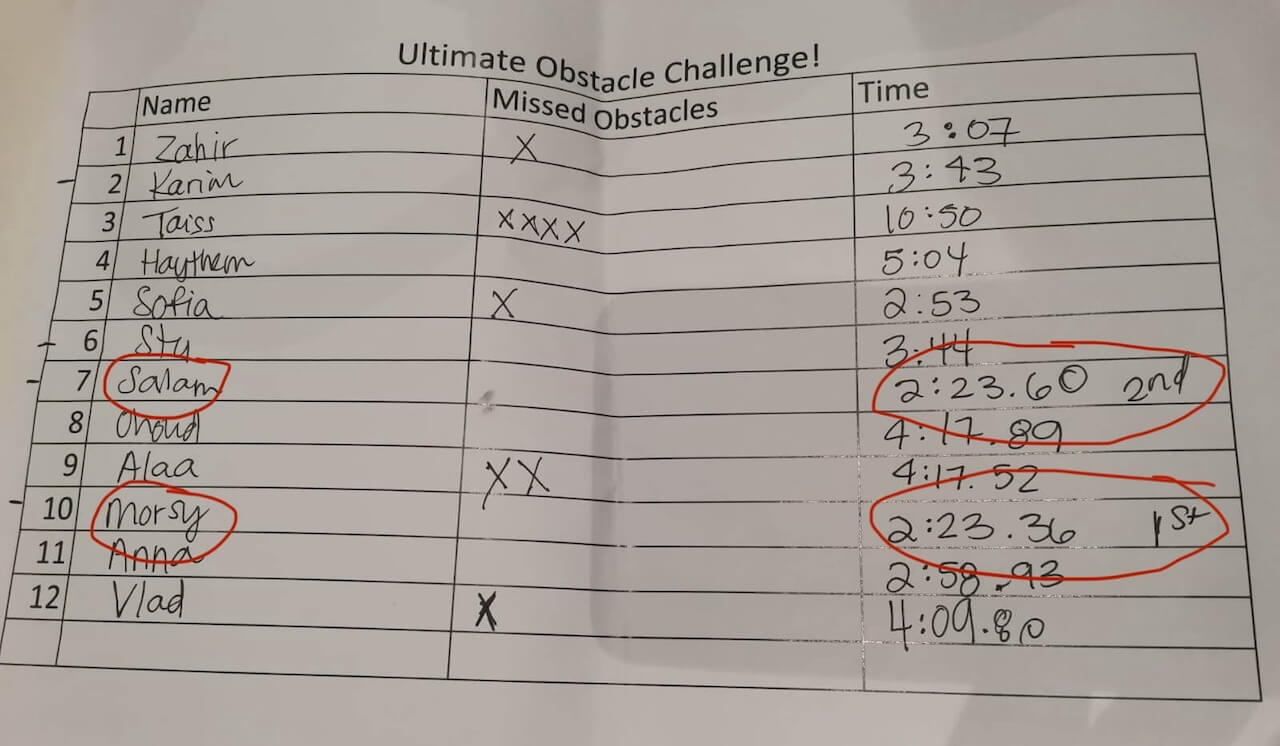 Ultimate Obstacle Challenge!
Name Missed Obstacles Time
1 Zahir X 3:07
2 Karim 3:43
3 Taiss XXXX 10:50
4 Haythem 5:04
5 Sofia X 2:53
6 Stu 3:44
7 Salam 2:23.60 2nd
8 Ohoud 4:17.89
9 Alaa XX 4:17.52
10 Morsy 2:23.36 1st
11 Anna 2:58.93
12 Vlad X 4:09.80